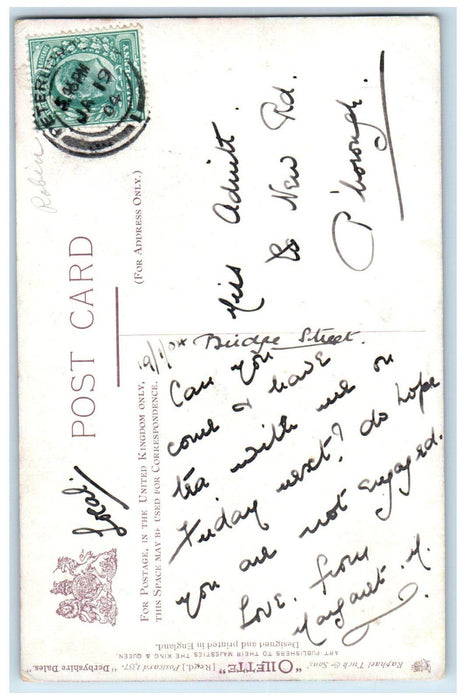 POST CARD
Local/
FOR POSTAGE, IN THE UNITED KINGDOM ONLY,
THIS SPACE MAY BE USED FOR CORRESPONDENCE.
(FOR ADDRESS ONLY.)
19/1/04
Bridge Street.
Can you
come & have
tea with me on
Friday next? do hope
you are not engaged.
Love. from
Margaret. M.
Miss Adnitt.
New Rd.
P'borough.
JA 19
04
Robin
Raphael Tuck & Sons' "OILETTE" [Regd.] Postcard 1357. "Derbyshire Dales."
ART PUBLISHERS TO THEIR MAJESTIES THE KING & QUEEN.
Designed and printed in England.